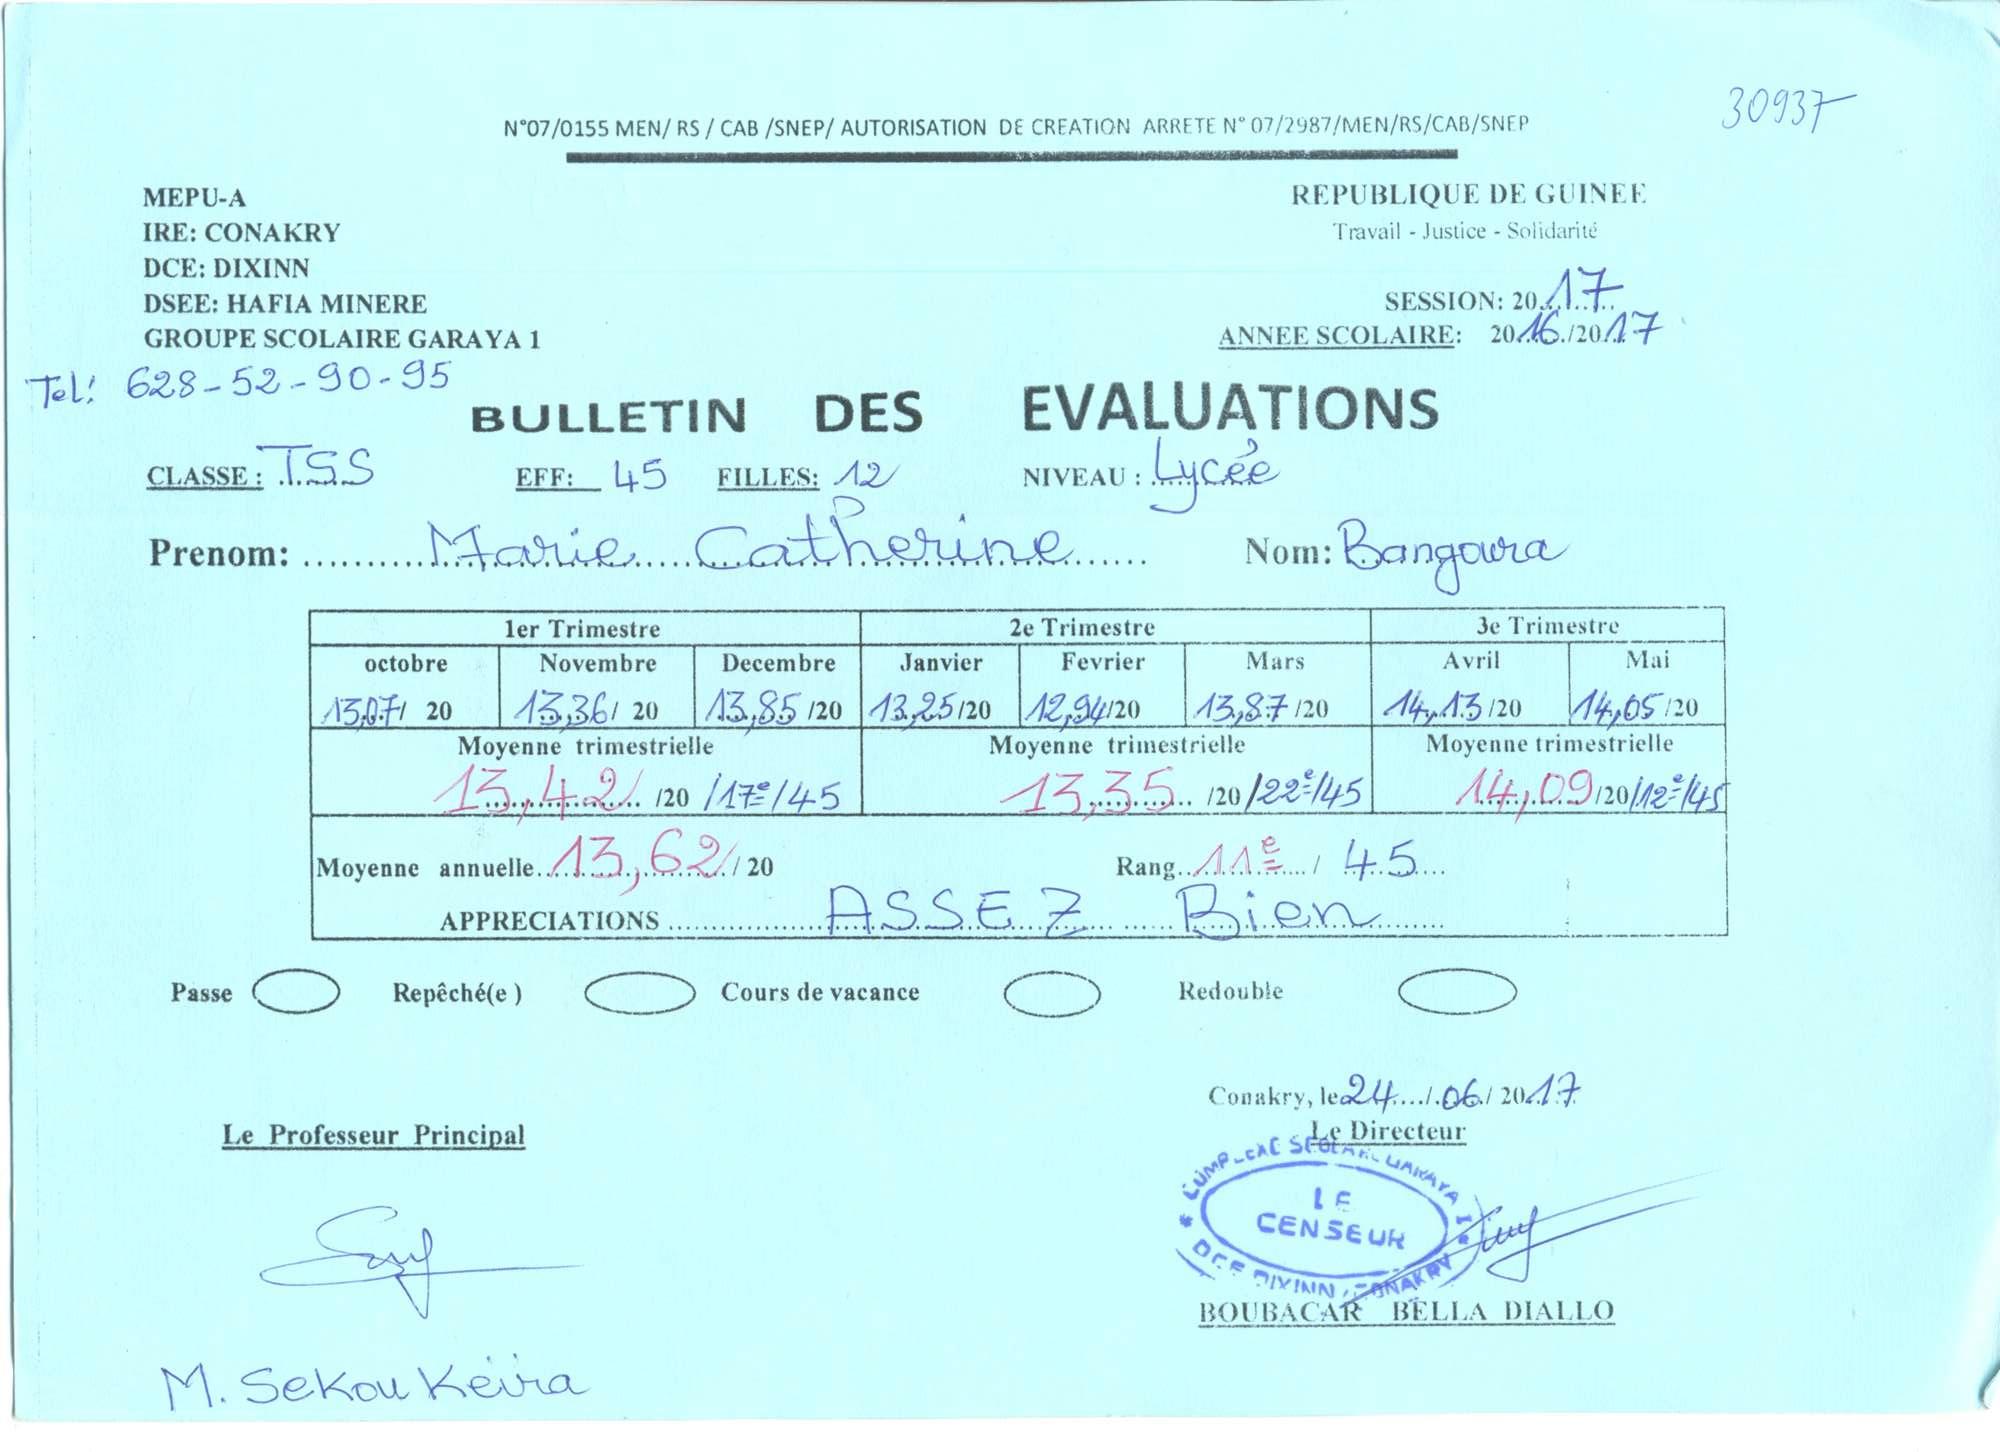 30937
N°07/0155 MEN/ RS / CAB /SNEP/ AUTORISATION DE CREATION ARRETE N° 07/2987/MEN/RS/CAB/SNEP
MEPU-A
IRE: CONAKRY
DCE: DIXINN
DSEE: HAFIA MINERE
GROUPE SCOLAIRE GARAYA 1
Tel: 628-52-90-95
REPUBLIQUE DE GUINEE
Travail - Justice - Solidarité
SESSION: 2017
ANNEE SCOLAIRE: 2016/2017
BULLETIN DES EVALUATIONS
CLASSE : TSS EFF: 45 FILLES: 12 NIVEAU : Lycée
Prenom: Marie Catherine Nom: Bangoura
1er Trimestre 2e Trimestre 3e Trimestre
octobre Novembre Decembre Janvier Fevrier Mars Avril Mai
13,07/ 20 13,36/ 20 13,85 /20 13,25/20 12,94/20 13,87 /20 14,13 /20 14,05 /20
Moyenne trimestrielle Moyenne trimestrielle Moyenne trimestrielle
13,42 /20 /17e/45 13,35 /20 /22e/45 14,09 /20/12e/45
Moyenne annuelle 13,62 / 20 Rang 11e / 45
APPRECIATIONS ASSEZ Bien
Passe Repêché(e ) Cours de vacance Redouble
Conakry, le 24/06/ 2017
Le Professeur Principal Le Directeur
COMPLEXE SCOLAIRE GARAYA I
LE
CENSEUR
* DCE DIXINN / CONAKRY *
BOUBACAR BELLA DIALLO
M. Sekou Keira